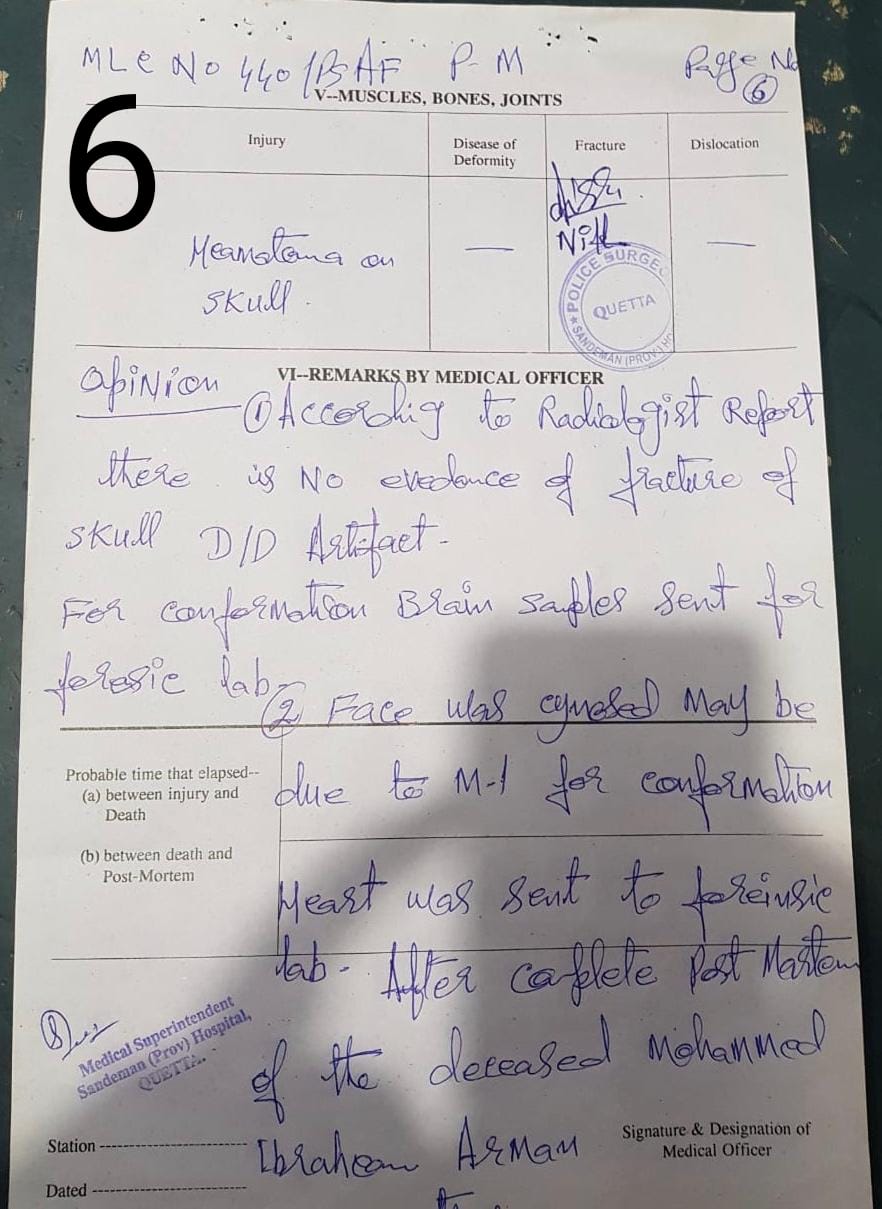 MLC No 440/BSAF P-M Page No
6
6
V--MUSCLES, BONES, JOINTS
Injury
Disease of Deformity
Fracture
Dislocation
Heamotoma on
skull.
—
Nill
—
POLICE SURGEO
QUETTA
SANDEMAN (PROV) HO
Opinion
VI--REMARKS BY MEDICAL OFFICER
① According to Radiologist Report
there is No evedance of fracture of
skull D/D Artifact-
For conformation Brain samples sent for
foresic lab-
② Face was cynosed May be
Probable time that elapsed--
(a) between injury and
Death
due to M-I for conformation
(b) between death and
Post-Mortem
Heart was sent to foreinsic
lab- After complete Post Martem
Medical Superintendent
Sandeman (Prov) Hospital,
QUETTA.
of the deceased Mohammed
Signature & Designation of
Medical Officer
Station
Ibraheam Arman
Dated